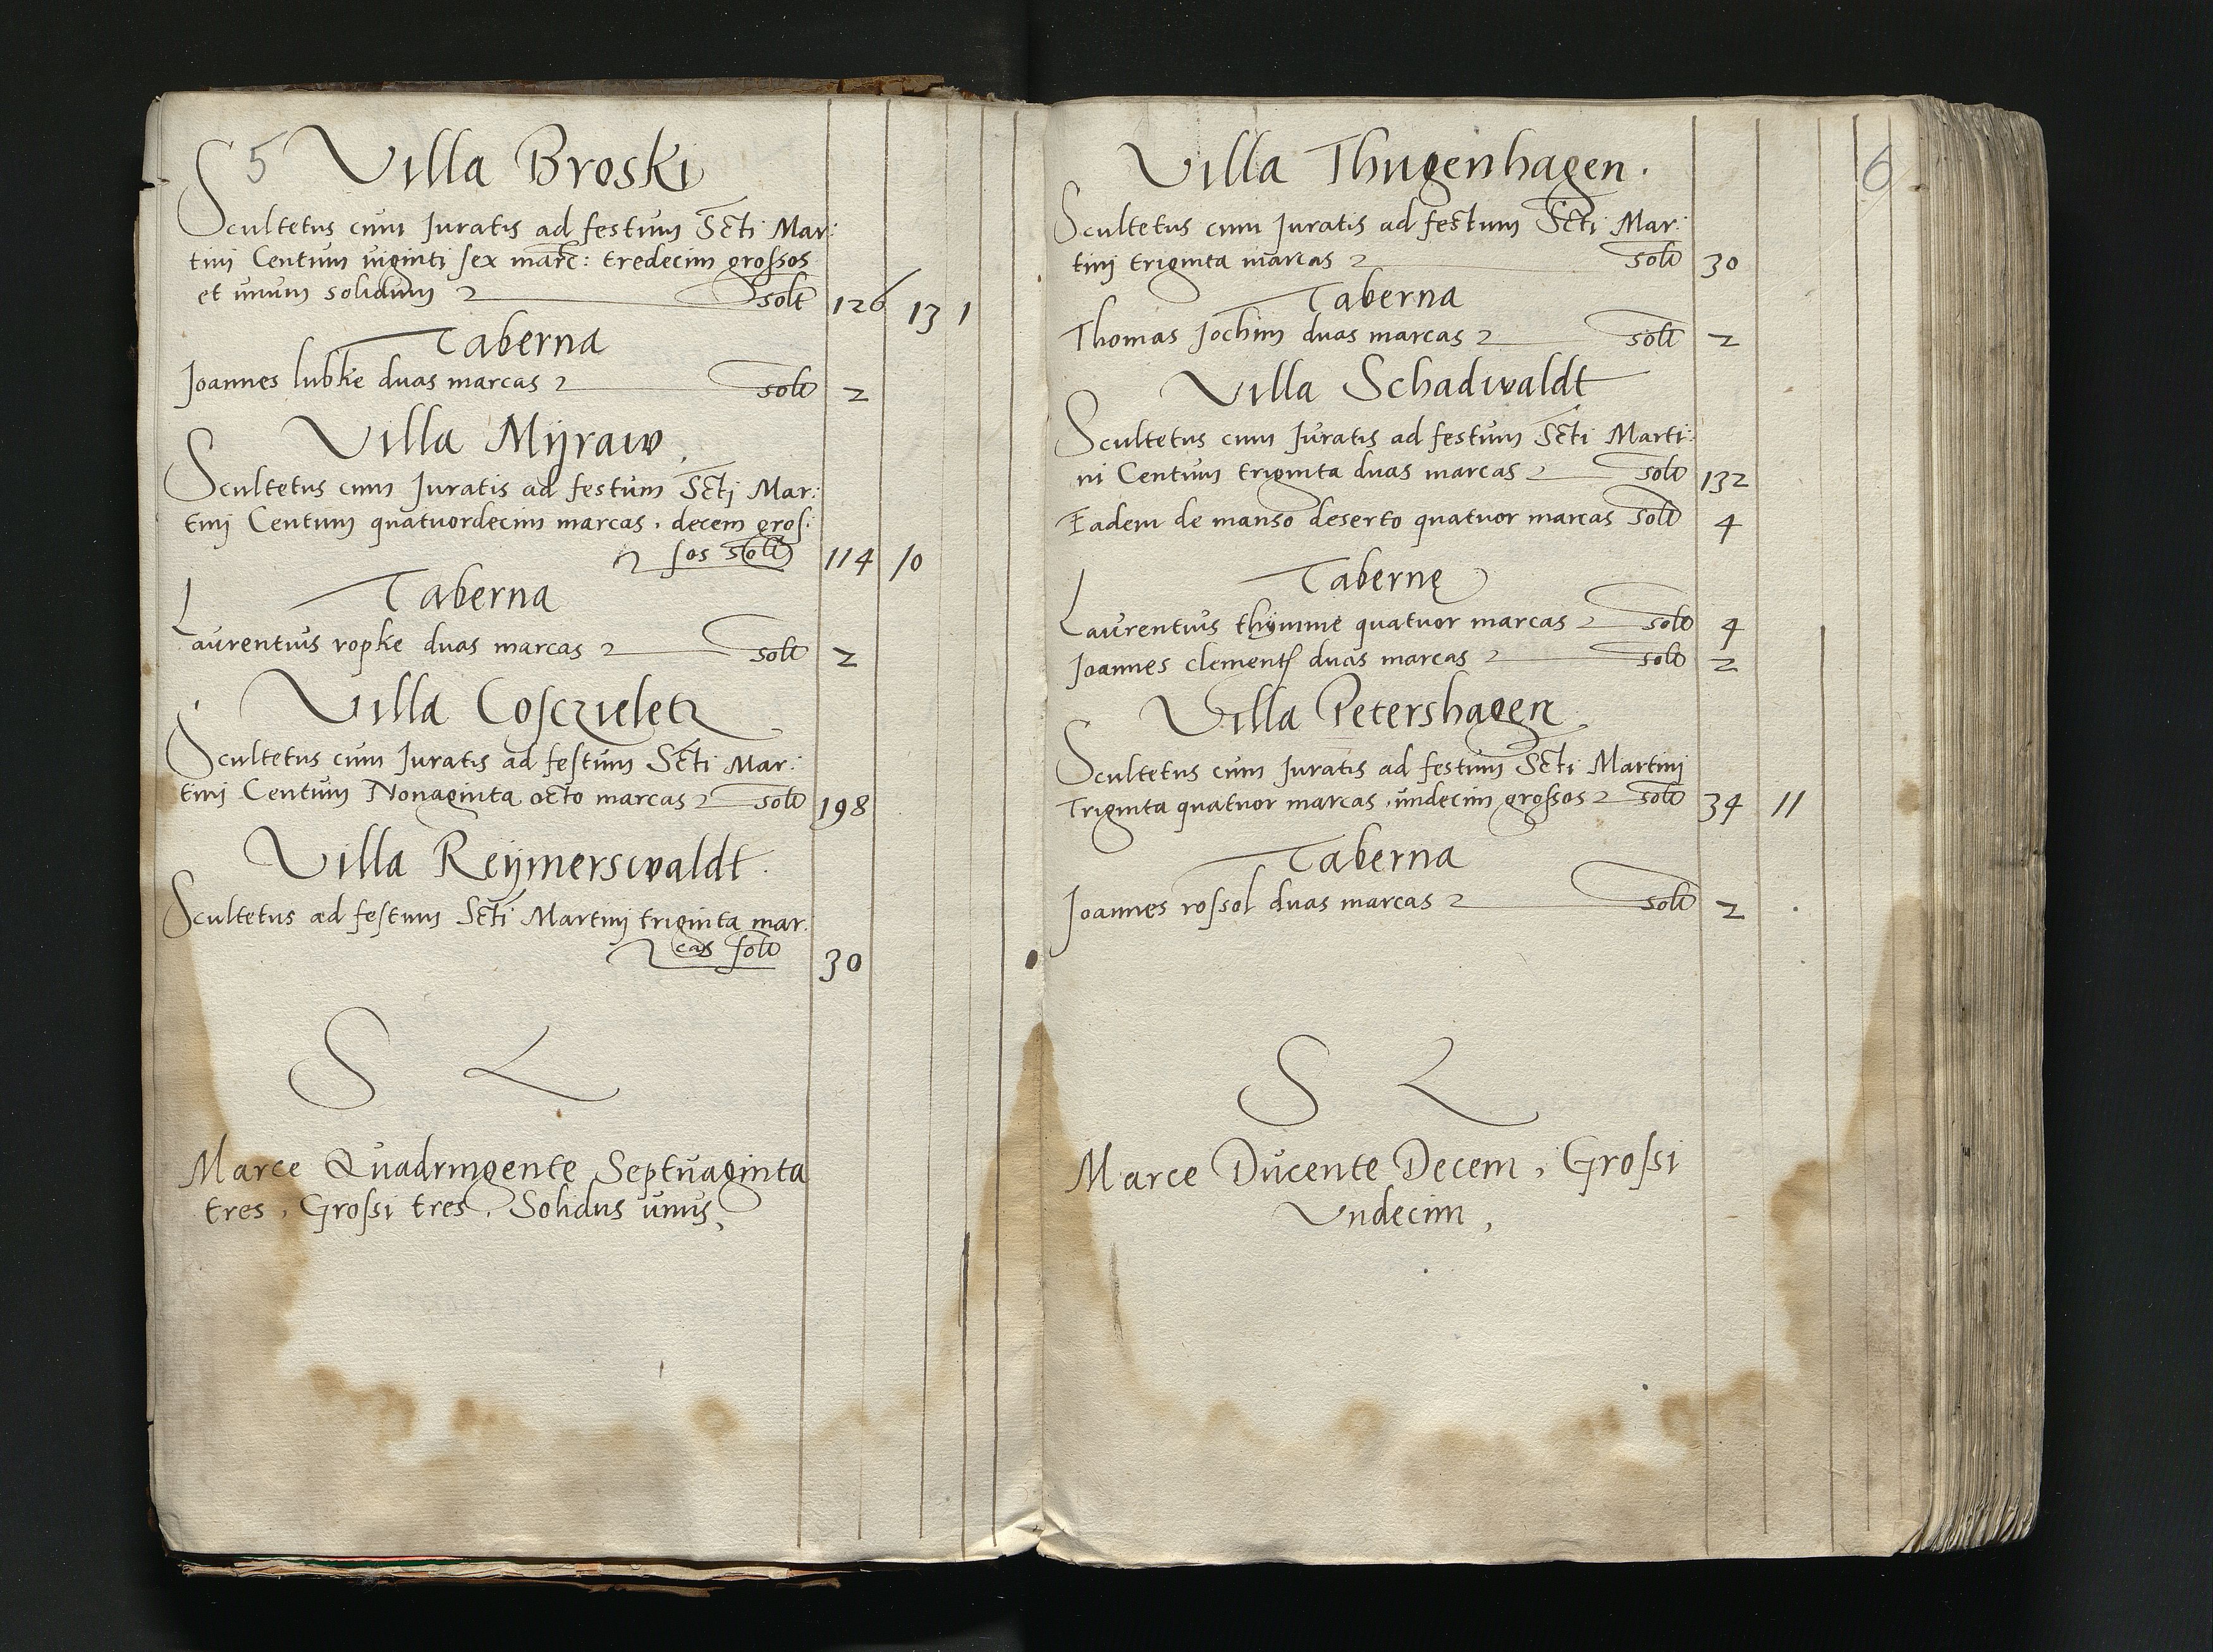 5 Villa Broski
Scultetus cum Iuratis ad festum Scti Mar:
tinj Centum viginti sex marc: tredecim grossos
et unum solidum solt 126 13 1
Taberna
Joannes lubke duas marcas solt 2
Villa Mÿraw
Scultetus cum Iuratis ad festum Sctj Mar:
tinj Centum quatuordecim marcas, decem gros:
sos solt 114 10
Taberna
Laurentius ropke duas marcas solt 2
Villa Cosczieletz
Scultetus cum Iuratis ad festum Scti Mar:
tinj Centum Nonaginta octo marcas solt 198
Villa Reÿmerswaldt.
Scultetus ad festum Scti Martinj triginta mar:
cas solt 30
S
Marce Quadringente Septuaginta
tres, Grossi tres, Solidus unus,
6
Villa Thugenhagen.
Scultetus cum Iuratis ad festum Scti Mar:
tinj triginta marcas solt 30
Taberna
Thomas Jochim duas marcas solt 2
Villa Schadwaldt
Scultetus cum Iuratis ad festum Scti Marti:
ni Centum triginta duas marcas solt 132
Eadem de manso deserto quatuor marcas solt 4
Tabernę
Laurentius thÿmme quatuor marcas solt 4
Joannes clement duas marcas solt 2
Villa Petershagen
Scultetus cum Iuratis ad festum Scti Martinj
Triginta quatuor marcas, undecim grossos solt 34 11
Taberna
Joannes rossol duas marcas solt 2
S
Marce Ducente Decem, Grossi
Vndecim,